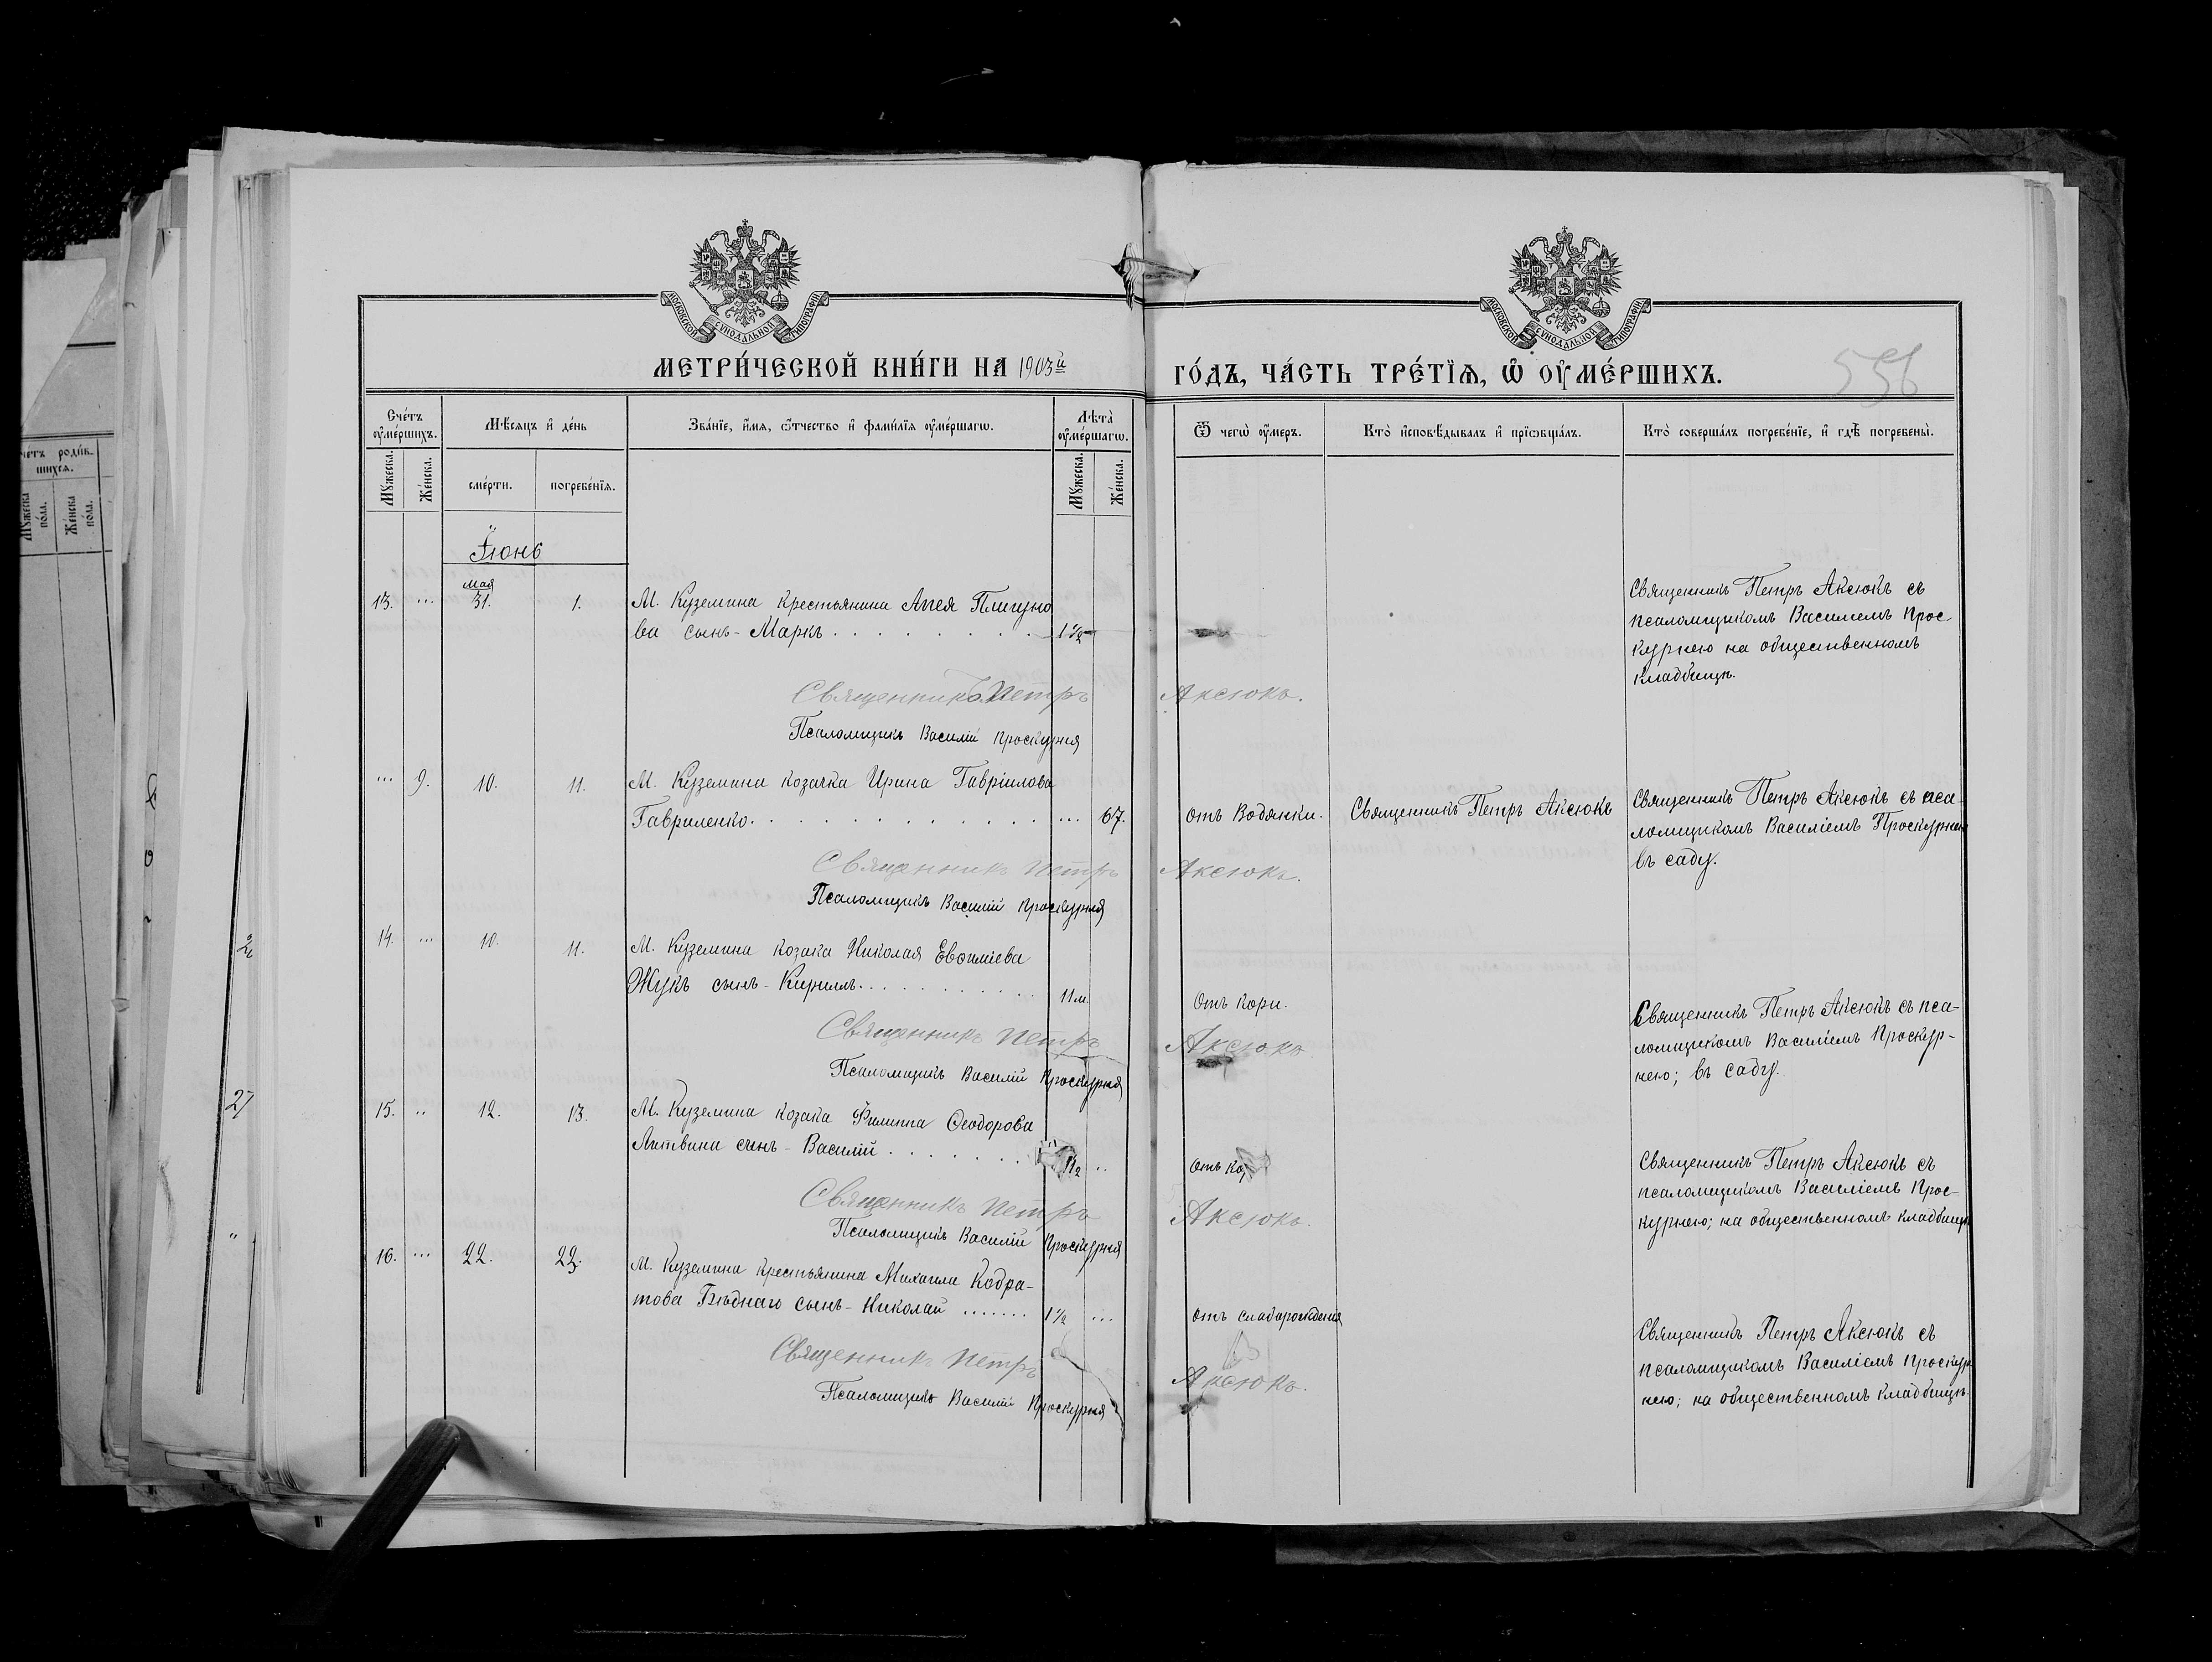 МОСКОВСКОЙ СѴНОДАЛЬНОЙ ТИПОГРАФІИ
МОСКОВСКОЙ СѴНОДАЛЬНОЙ ТИПОГРАФІИ
МЕТРИ́ЧЕСКОЙ КНИ́ГИ НА 1903й ГО́ДЪ, ЧА́СТЬ ТРЕ́ТЇѦ, Ѡ ОУМЕ́РШИХЪ.
556
Сче́тъ оуме́ршихъ.
Мѣ́сѧцъ и де́нь
Зва́нїе, и́мѧ, ѻ҆́тчество и фами́лїѧ оуме́ршагѡ.
Лѣта̀ оуме́ршагѡ.
Ѿ чегѡ̀ оу́меръ.
Кто̀ и҆сповѣ́дывалъ и прїѡбща́лъ.
Кто̀ соверша́лъ погребе́нїе, и гдѣ̀ погребены̀.
Мꙋ́жеска.
Же́нска.
сме́рти.
погребе́нїѧ.
Мꙋ́жеска.
Же́нска.
Іюнь
мая
13. ... 31. 1. М. Куземина крестьянина Агея Плигуно
ва сынъ - Маркъ . . . . . . . . . 1½
Священникъ Петръ Аксюкъ съ
псаломщикомъ Василіемъ Прос-
курнею на общественномъ
кладбищѣ.
Священникъ Петръ Аксюкъ.
Псаломщикъ Василій Проскурня
... 9. 10. 11. М. Куземина козачка Ирина Гавріилова
Гавриленко. . . . . . . . . . . . ... 67. Отъ Водянки. Священникъ Петръ Аксюкъ
Священникъ Петръ Аксюкъ съ пса-
ломщикомъ Василіемъ Проскурнею
въ саду.
Священникъ Петръ Аксюкъ.
Псаломщикъ Василій Проскурня
14. ... 10. 11. М. Куземина козака Николая Евѳиміева
Жукъ сынъ - Кириллъ. . . . . . . . . . . 11м. Отъ кори.
Священникъ Петръ Аксюкъ съ пса-
ломщикомъ Василіемъ Проскур-
нею; въ саду.
Священникъ Петръ Аксюкъ
Псаломщикъ Василій Проскурня
15. .. 12. 13. М. Куземина козака Филиппа Ѳеодорова
Литвина сынъ - Василій . . . . . . . ½ .. Отъ ко
Священникъ Петръ Аксюкъ съ
псаломщикомъ Василіемъ Прос-
курнею; на общественномъ кладбищѣ
Священникъ Петръ Аксюкъ.
Псаломщикъ Василій Проскурня
16. ... 22. 23. М. Куземина крестьянина Михаила Кодра-
това Бѣднаго сынъ - Николай ....... 1½ ... Отъ слаборожденія
Священникъ Петръ Аксюкъ съ
псаломщикомъ Василіемъ Проскур
нею; на общественномъ кладбищѣ.
Священникъ Петръ Аксюкъ.
Псаломщикъ Василій Проскурня
27